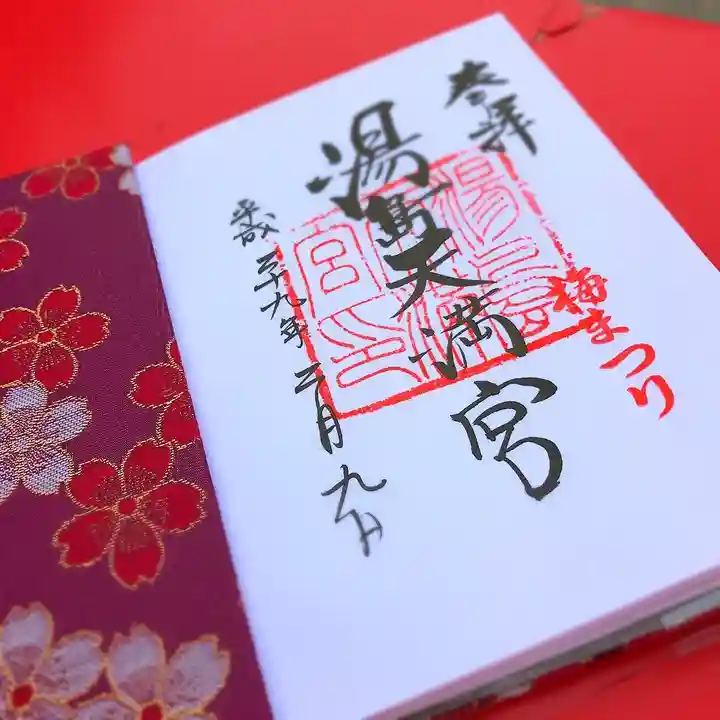 奉拝
梅まつり
湯島天満宮
平成二十九年二月九日